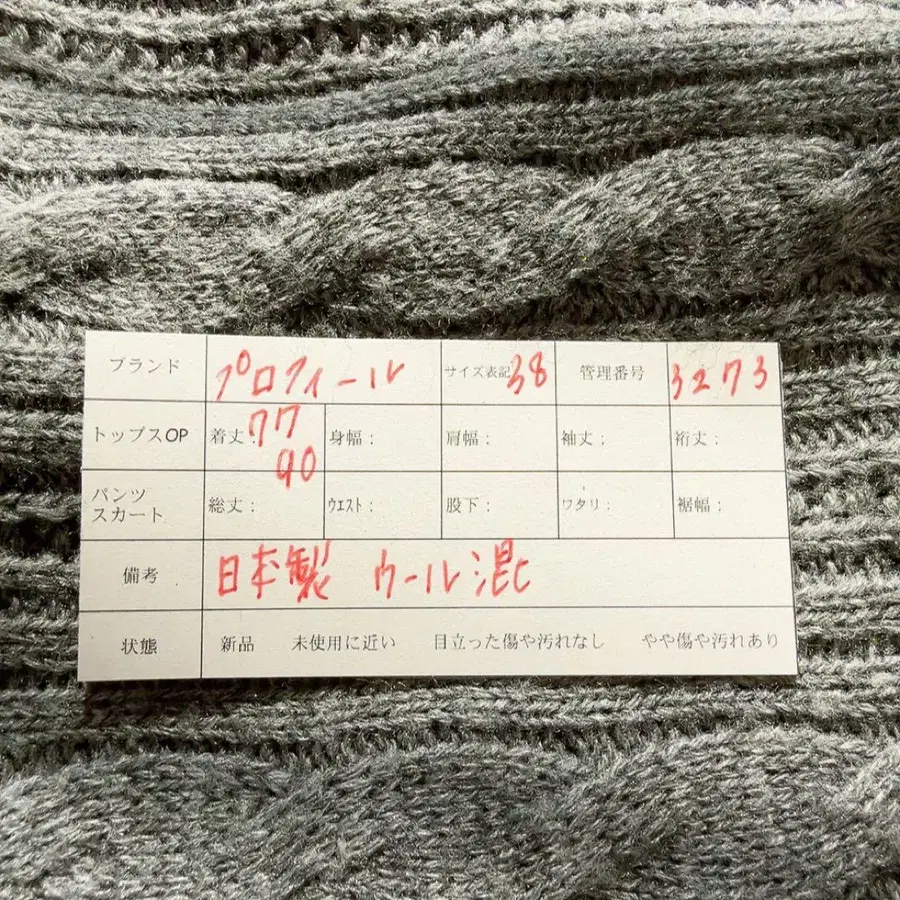 ブランド プロフィール サイズ表記 38 管理番号 3273
トップスOP 着丈: 77 身幅: 肩幅: 袖丈: 裄丈:
90
パンツ
スカート 総丈: ウエスト: 股下: ワタリ: 裾幅:
備考 日本製 ウール混
状態 新品 未使用に近い 目立った傷や汚れなし やや傷や汚れあり